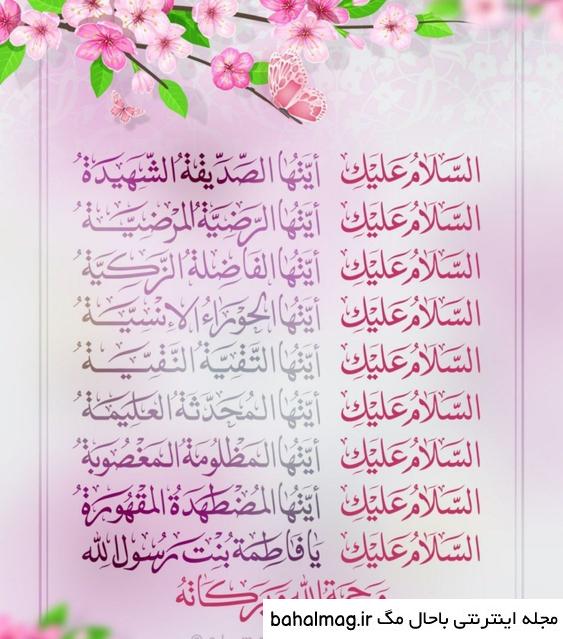 السَّلَامُ عَلَيْكِ أَيَّتُهَا الصِّدِّيقَةُ الشَّهِيدَةُ
السَّلَامُ عَلَيْكِ أَيَّتُهَا الرَّضِيَّةُ الْمَرْضِيَّةُ
السَّلَامُ عَلَيْكِ أَيَّتُهَا الْفَاضِلَةُ الزَّكِيَّةُ
السَّلَامُ عَلَيْكِ أَيَّتُهَا الْحَوْرَاءُ الْإِنْسِيَّةُ
السَّلَامُ عَلَيْكِ أَيَّتُهَا التَّقِيَّةُ النَّقِيَّةُ
السَّلَامُ عَلَيْكِ أَيَّتُهَا الْمُحَدَّثَةُ الْعَلِيمَةُ
السَّلَامُ عَلَيْكِ أَيَّتُهَا الْمَظْلُومَةُ الْمَغْصُوبَةُ
السَّلَامُ عَلَيْكِ أَيَّتُهَا الْمُضْطَهَدَةُ الْمَقْهُورَةُ
السَّلَامُ عَلَيْكِ يَا فَاطِمَةُ بِنْتَ رَسُولِ اللهِ
وَرَحْمَةُ اللهِ وَبَرَكَاتُهُ
مجله اینترنتی باحال مگ bahalmag.ir